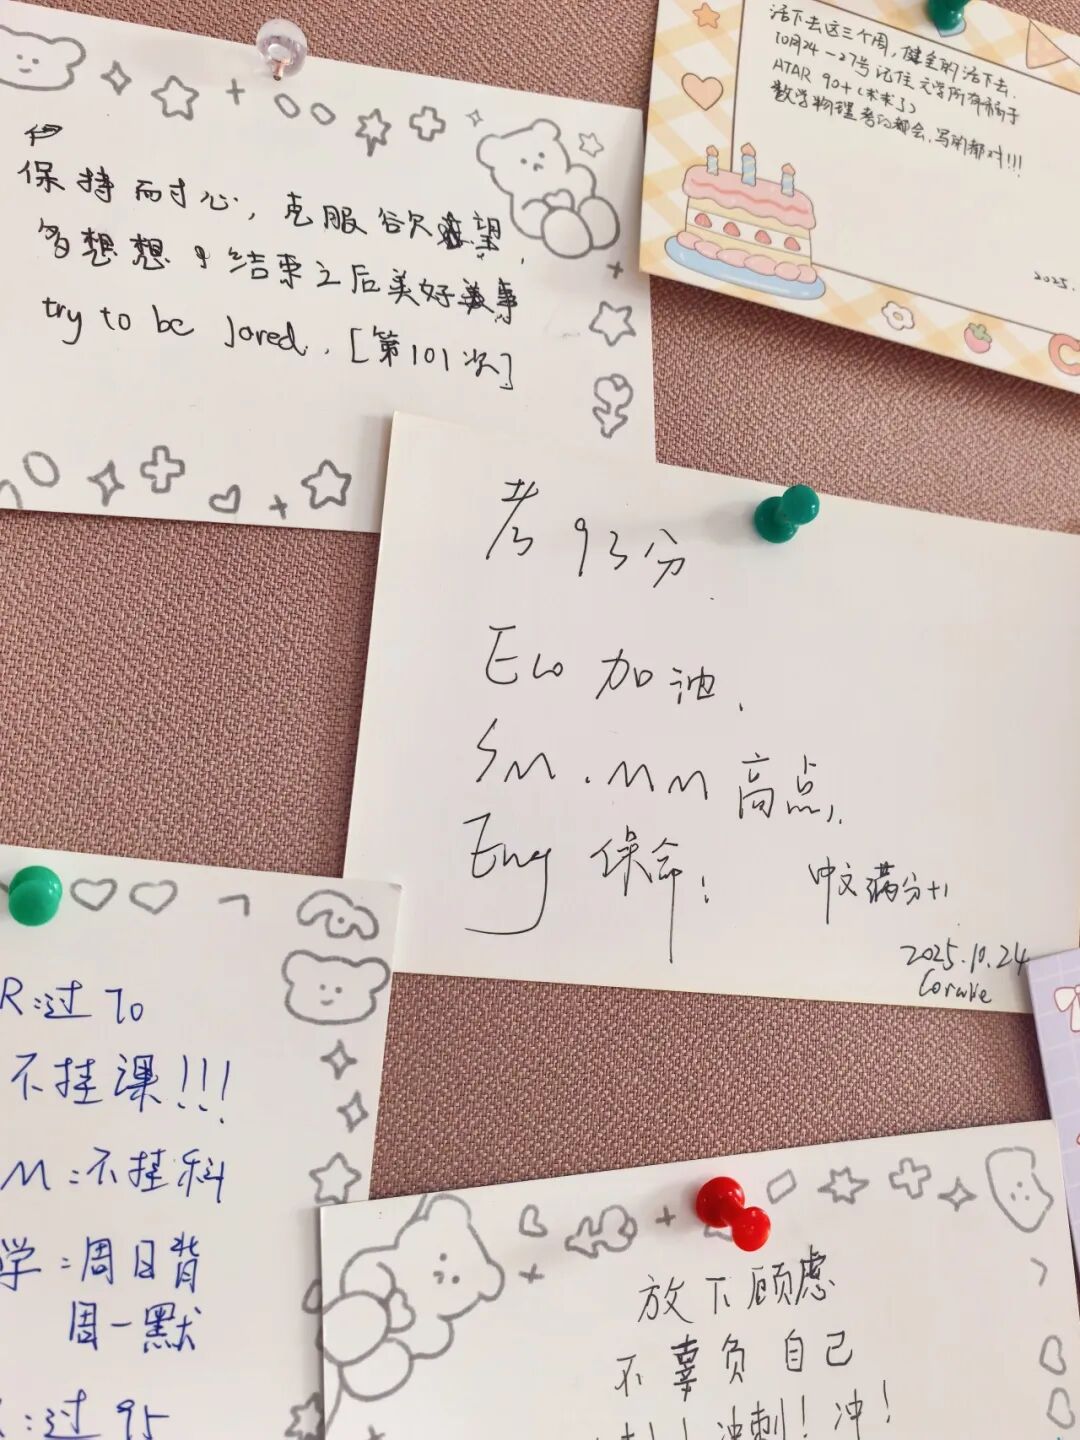 保持耐心，克服欲望，
多想想结束之后美好
try to be loved. [第101次]
活下去这三个周，健全的活下去.
10月24—27号记住文学所有
ATAR 90+(未来了)
数学物理考的都会,写的都对!!!
2025.
考93分.
Eco 加油.
SM.MM 高点,
Eng 保命!
中文满分+1
2025.10.24
R:过70
不挂课!!!
M:不挂科
学:周日背
周一默
:过95
放下顾虑
不辜负自己
冲刺!冲!